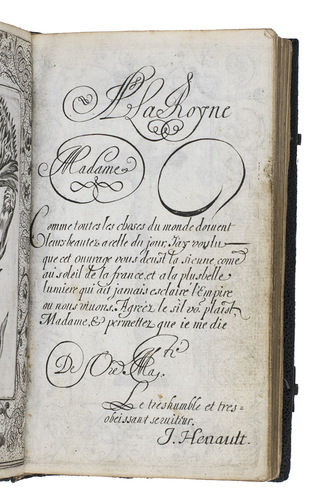 A La Royne
Madame
Comme toutes les choses du monde doiuent
leurs beautez a celle du jour, J'ay voulu
que cet ouurage vous deust la sienne come
au soleil de la france, et a la plus belle
lumiere qui ait jamais esclaire l'Empire
ou nous viuons. Agreez le s'il vo. plaist
Madame, & permettez que ie me die
De Vre. Maj.tie
Le tres humble et tres=
obeissant seruiteur.
J. Henault.